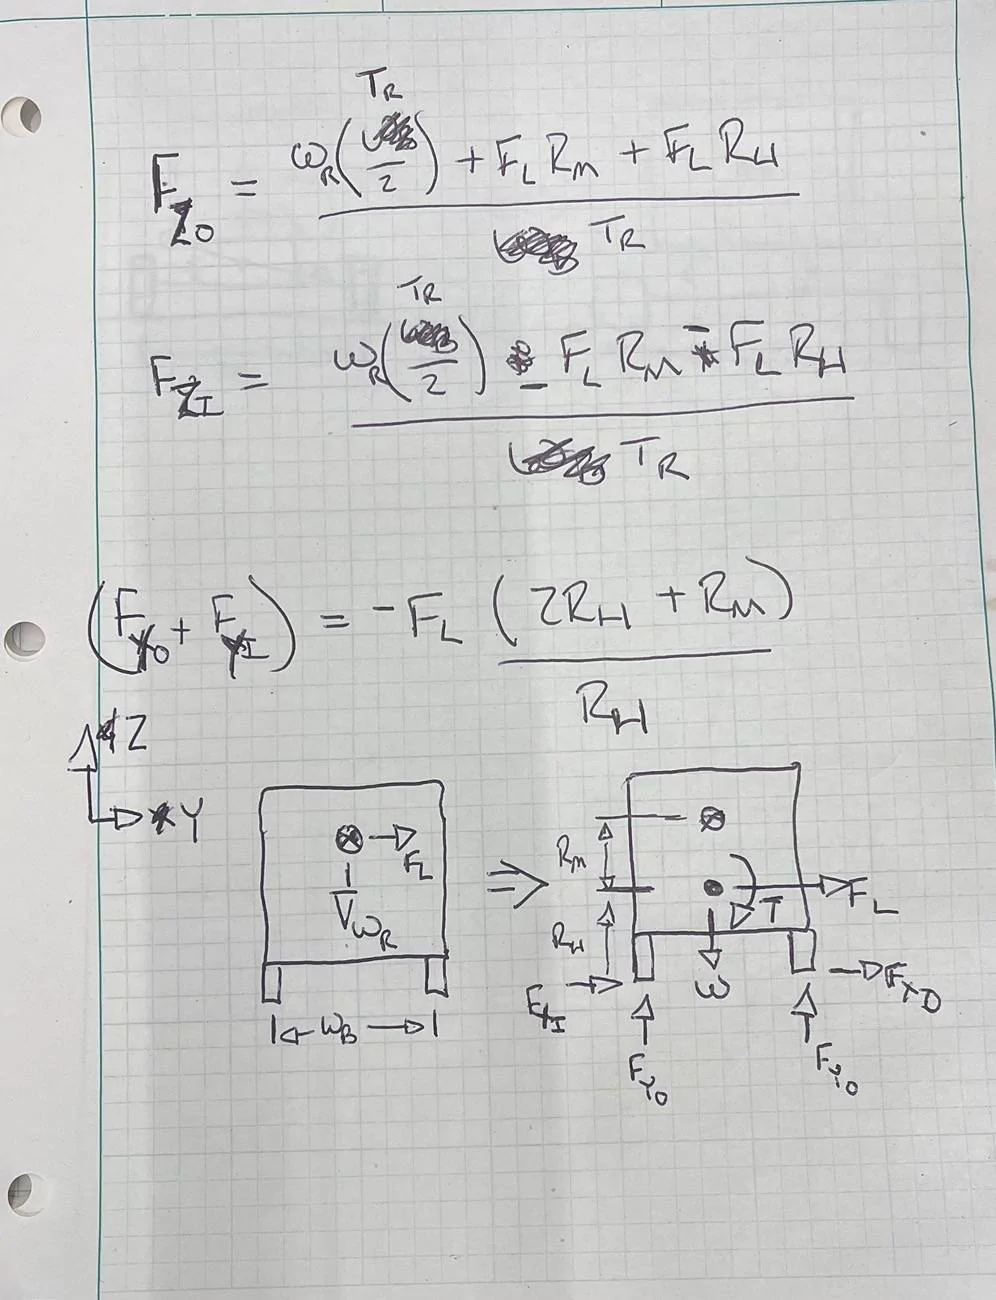 T_R
F_ZO = ω_R( /2) + F_L R_M + F_L R_H
T_R
T_R
F_ZI = ω_R( /2) - F_L R_M - F_L R_H
T_R
(F_YO + F_YI) = -F_L (2R_H + R_M)
R_H
Z
Y
F_L
ω_R
ω_B
⇒
R_M
R_H
F_L
T
ω
F_YI
F_XO
F_YO
F_YO